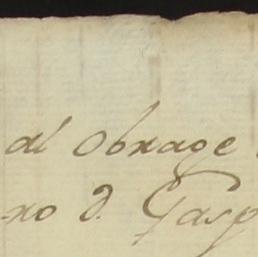 al Obrage
no d. Gasp